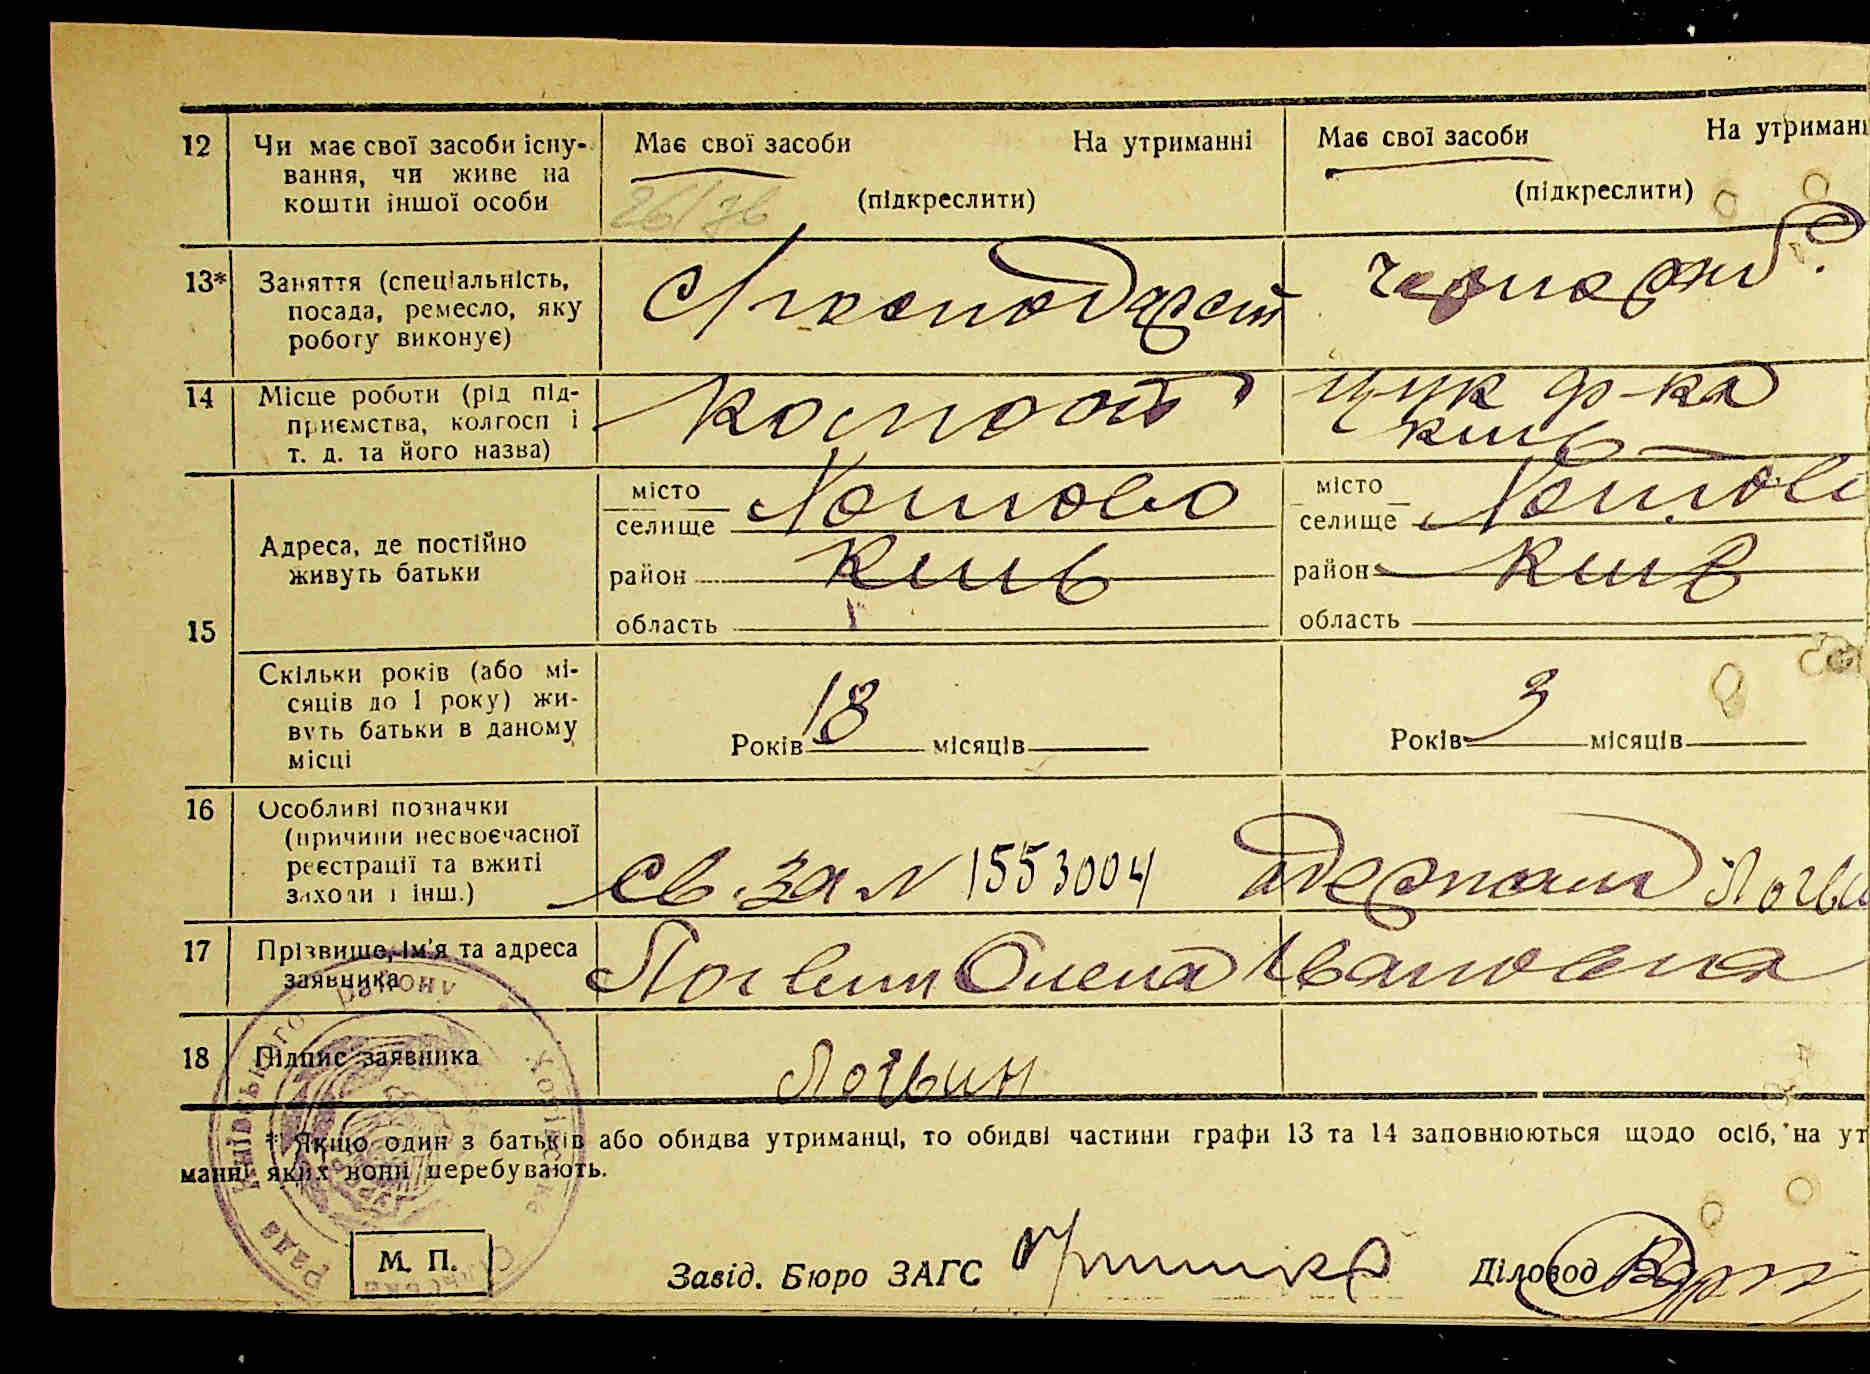 12 Чи має свої засоби існу-
вання, чи живе на
кошти іншої особи
Має свої засоби На утриманні
(підкреслити)
26/76
Має свої засоби На утриман
(підкреслити)
13* Заняття (спеціальність,
посада, ремесло, яку
роботу виконує)
14 Місце роботи (рід під-
приємства, колгосп і
т. д. та його назва)
цук ф-ка
Київ
15
Адреса, де постійно
живуть батьки
місто
селище Хотово
район Київ
область
місто
селище Хотов
район Київ
область
Скільки років (або мі-
сяців до 1 року) жи-
вуть батьки в даному
місці
Років 18 місяців
Років 3 місяців
16 Особливі позначки
(причини несвоєчасної
реєстрації та вжиті
заходи і інш.)
Св. за N 1553004 Логви
17 Прізвище, ім'я та адреса
заявника
Логвин Олена Івановна
18 Підпис заявника
Логвин
*) Якщо один з батьків або обидва утриманці, то обидві частини графи 13 та 14 заповнюються щодо осіб, на ут
манні яких вони перебувають.
Хотівська Сільська Рада Київського району
М. П.
Завід. Бюро ЗАГС
Діловод